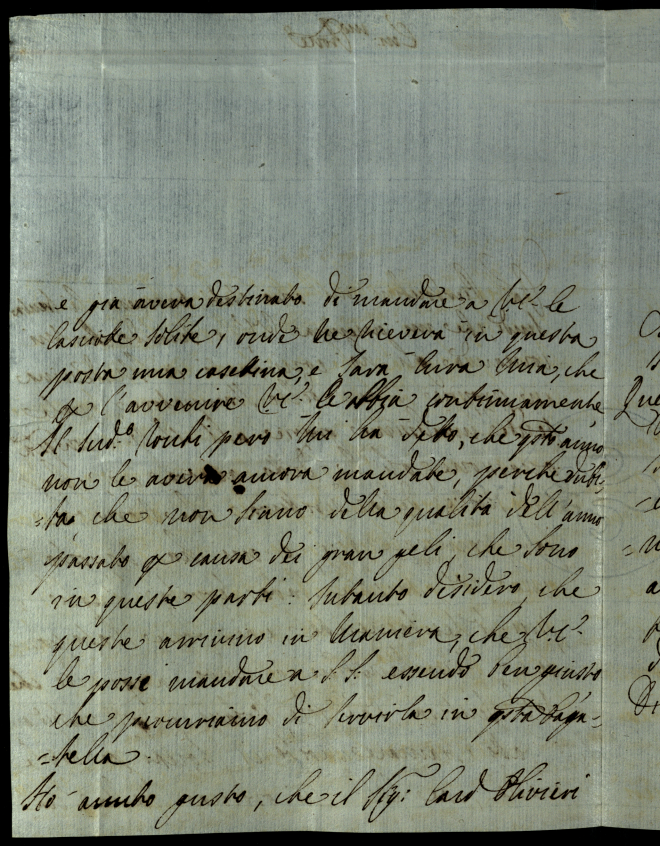 e già aveva destinato di mandare a V.E. le
solite, onde ne riceverà in questa
posta una casettina, e sarà cura mia, che
per l'avvenire V.E. le abbia continuamente
Il sud.º Conti però mi ha detto, che qsto anno
non le aveva ancora mandate, perche dubi-
-ta che non siano della qualità dell'anno
passato per causa dei gran geli, che sono
in queste parti: Intanto desidero, che
queste arrivino in maniera, che V.E.
le possi mandare a S.S. essendo ben giusto
che procuriamo di servirla in qsta baga-
-tella.
Ho avuto gusto, che il Sig: Card Olivieri